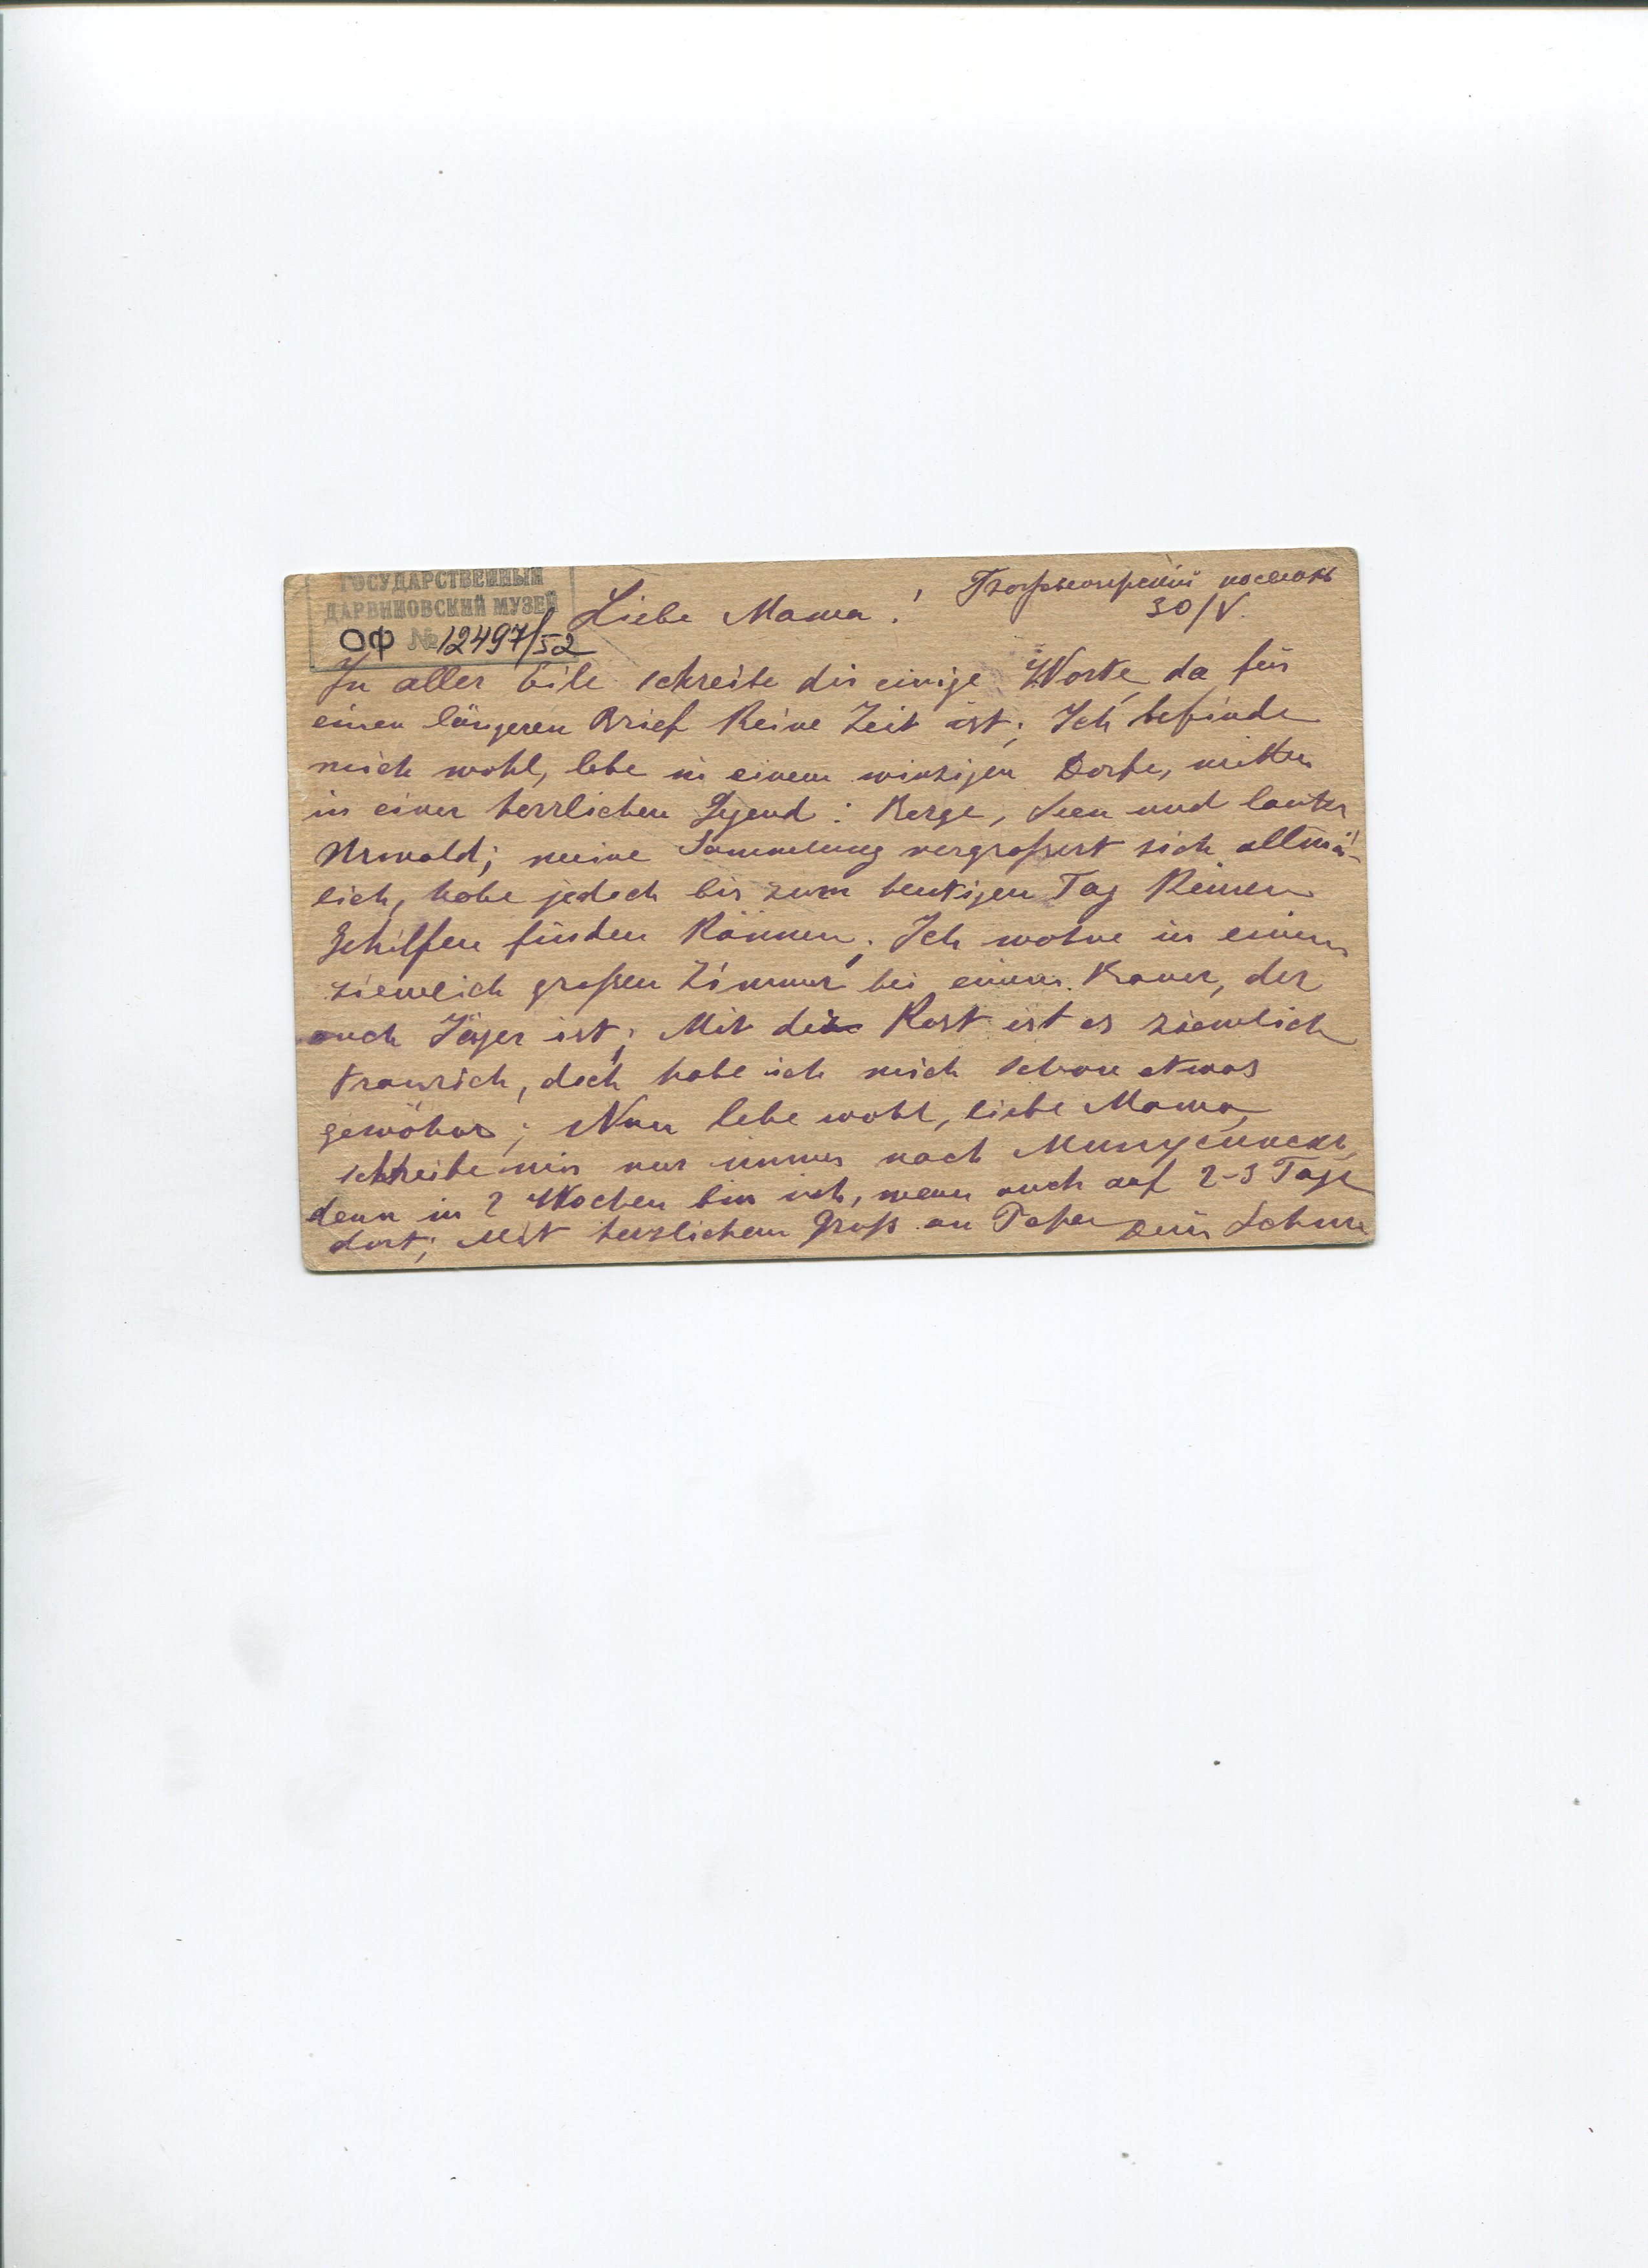 ГОСУДАРСТВЕННЫЙ
ДАРВИНОВСКИЙ МУЗЕЙ
ОФ № 12497/52
Liebe Mama!
поселокъ
30/V.
In aller Eile schreibe dir einige Worte, da für
einen längeren Brief keine Zeit ist; Ich befinde
mich wohl, lebe in einem winzigen Dorfe, mitten
in einer herrlichen Gegend: Berge, Seen und lauter
Urwald; meine Sammlung vergrößert sich allmä-
lich, habe jedoch bis zum heutigen Tag keinen
Gehilfen finden können; Ich wohne in einem
ziemlich großen Zimmer bei einem Bauer, der
auch Jäger ist; Mit der Kost ist es ziemlich
traurich, doch habe ich mich schon etwas
gewöhnt; Nun lebe wohl, liebe Mama,
schreibe mir nur immer nach Минусинскъ,
denn in 2 Wochen bin ich, wenn auch auf 2-3 Tage
dort; Mit herzlichem Gruß an Papa Dein Sohn